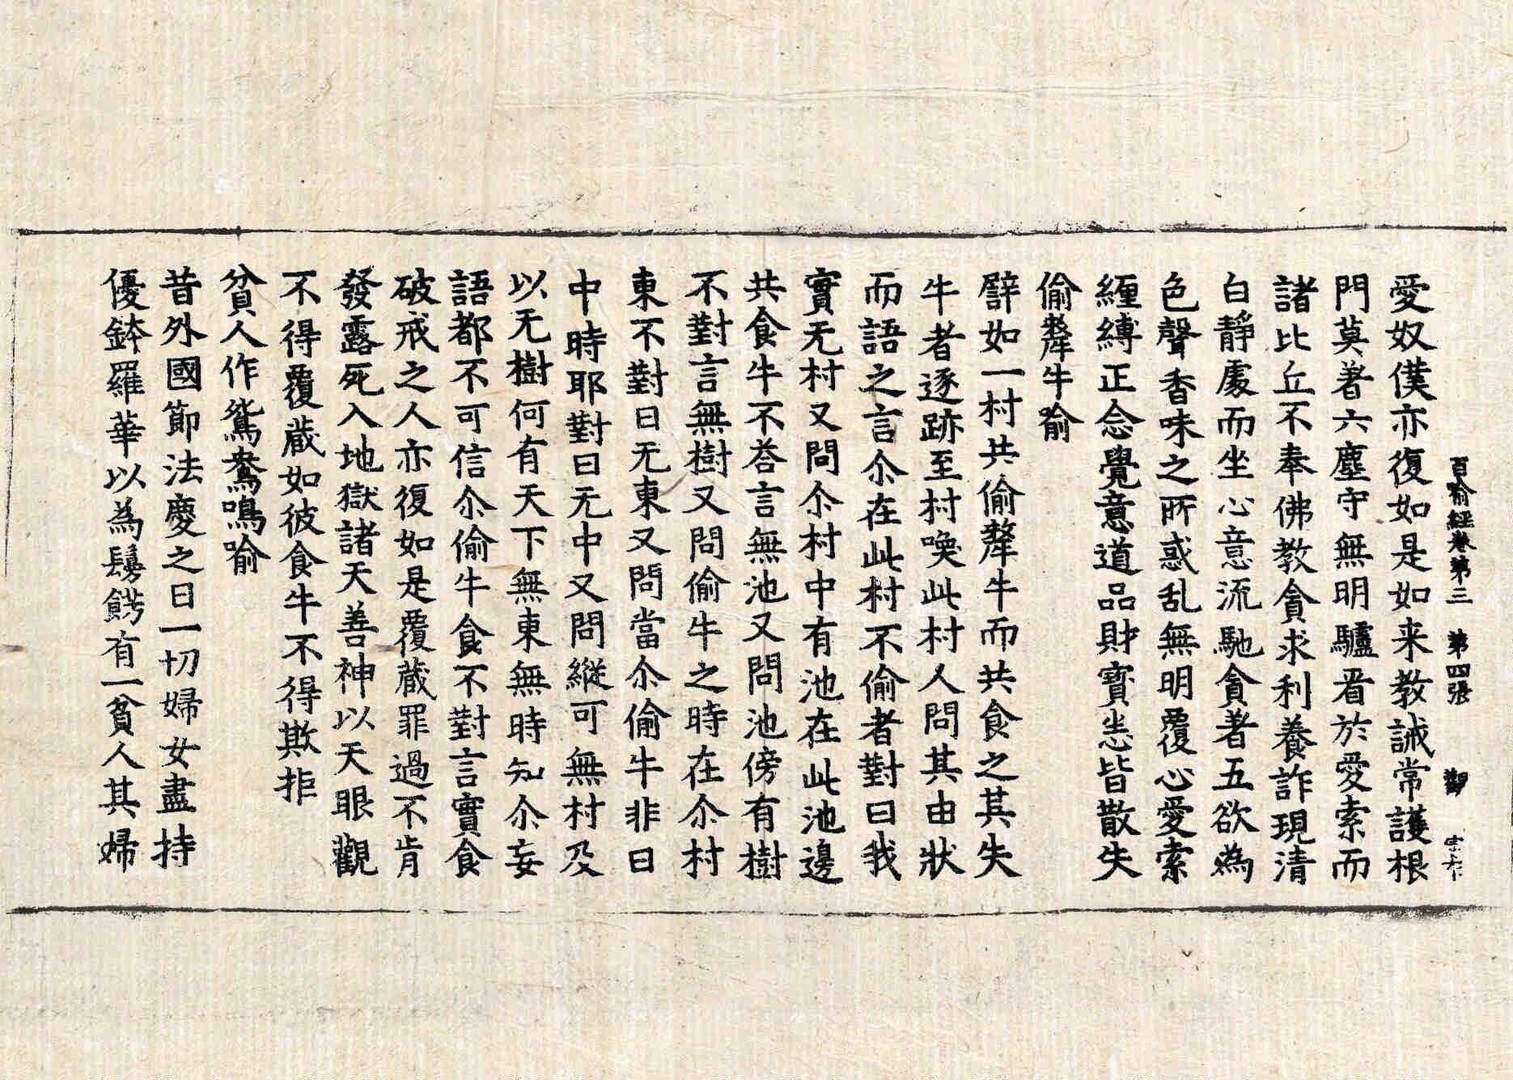 百喻經卷第三 第四張 觀
愛奴僕亦復如是如来教誡常護根
門莫著六塵守無明驢看於愛索而
諸比丘不奉佛教貪求利養詐現清
白靜處而坐心意流馳貪著五欲為
色聲香味之所惑乱無明覆心愛索
纏縛正念覺意道品財寶悉皆散失
偷犛牛喻
譬如一村共偷犛牛而共食之其失
牛者逐跡至村喚此村人問其由狀
而語之言尒在此村不偷者對曰我
實无村又問尒村中有池在此池邊
共食牛不荅言無池又問池傍有樹
不對言無樹又問偷牛之時在尒村
東不對曰无東又問當尒偷牛非日
中時耶對曰无中又問縱可無村及
以无樹何有天下無東無時知尒妄
語都不可信尒偷牛食不對言實食
破戒之人亦復如是覆藏罪過不肯
發露死入地獄諸天善神以天眼觀
不得覆蔵如彼食牛不得欺拒
貧人作鴛鴦鳴喻
昔外國節法慶之日一切婦女盡持
優鉢羅華以為鬘餝有一貧人其婦